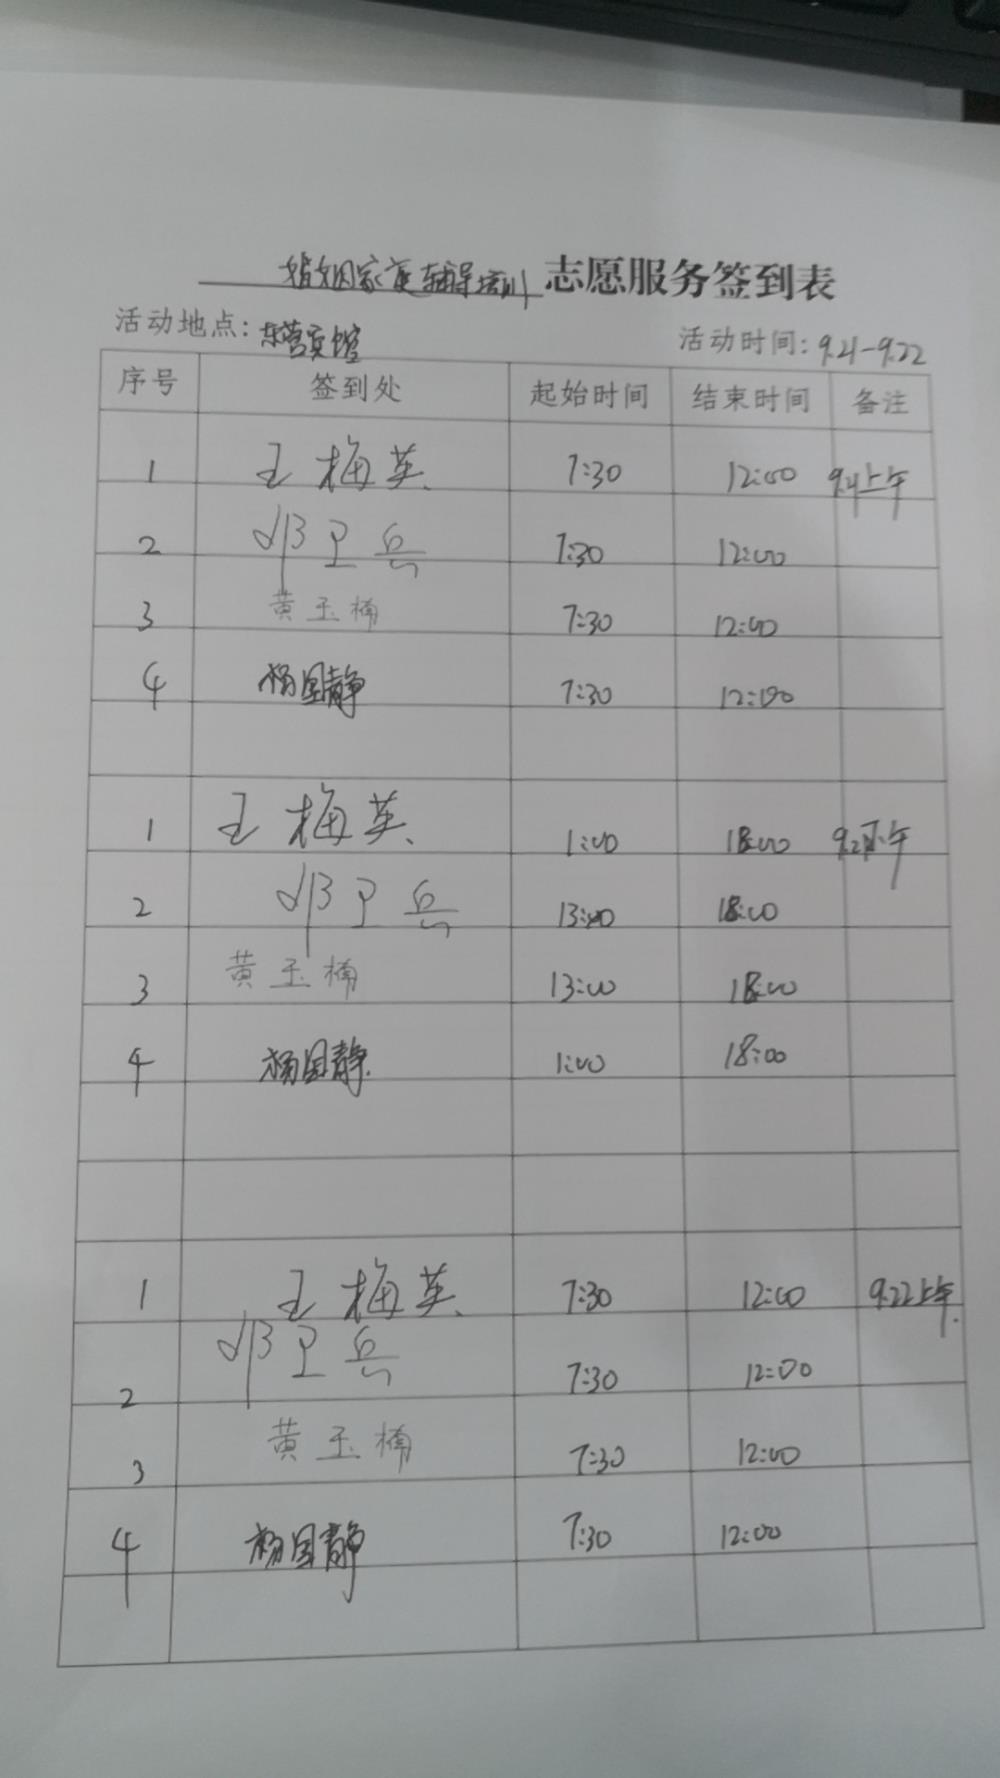 婚姻家庭辅导培训志愿服务签到表
活动地点：东营宾馆 活动时间：9.21-9.22
序号 签到处 起始时间 结束时间 备注
1 王梅英 7:30 12:00 9.21上午
2 邓卫兵 7:30 12:00
3 黄玉楠 7:30 12:00
4 杨国静 7:30 12:00
1 王梅英 1:00 18:00 9.21下午
2 邓卫兵 13:00 18:00
3 黄玉楠 13:00 18:00
4 杨国静 1:00 18:00
1 王梅英 7:30 12:00 9.22上午
2 邓卫兵 7:30 12:00
3 黄玉楠 7:30 12:00
4 杨国静 7:30 12:00